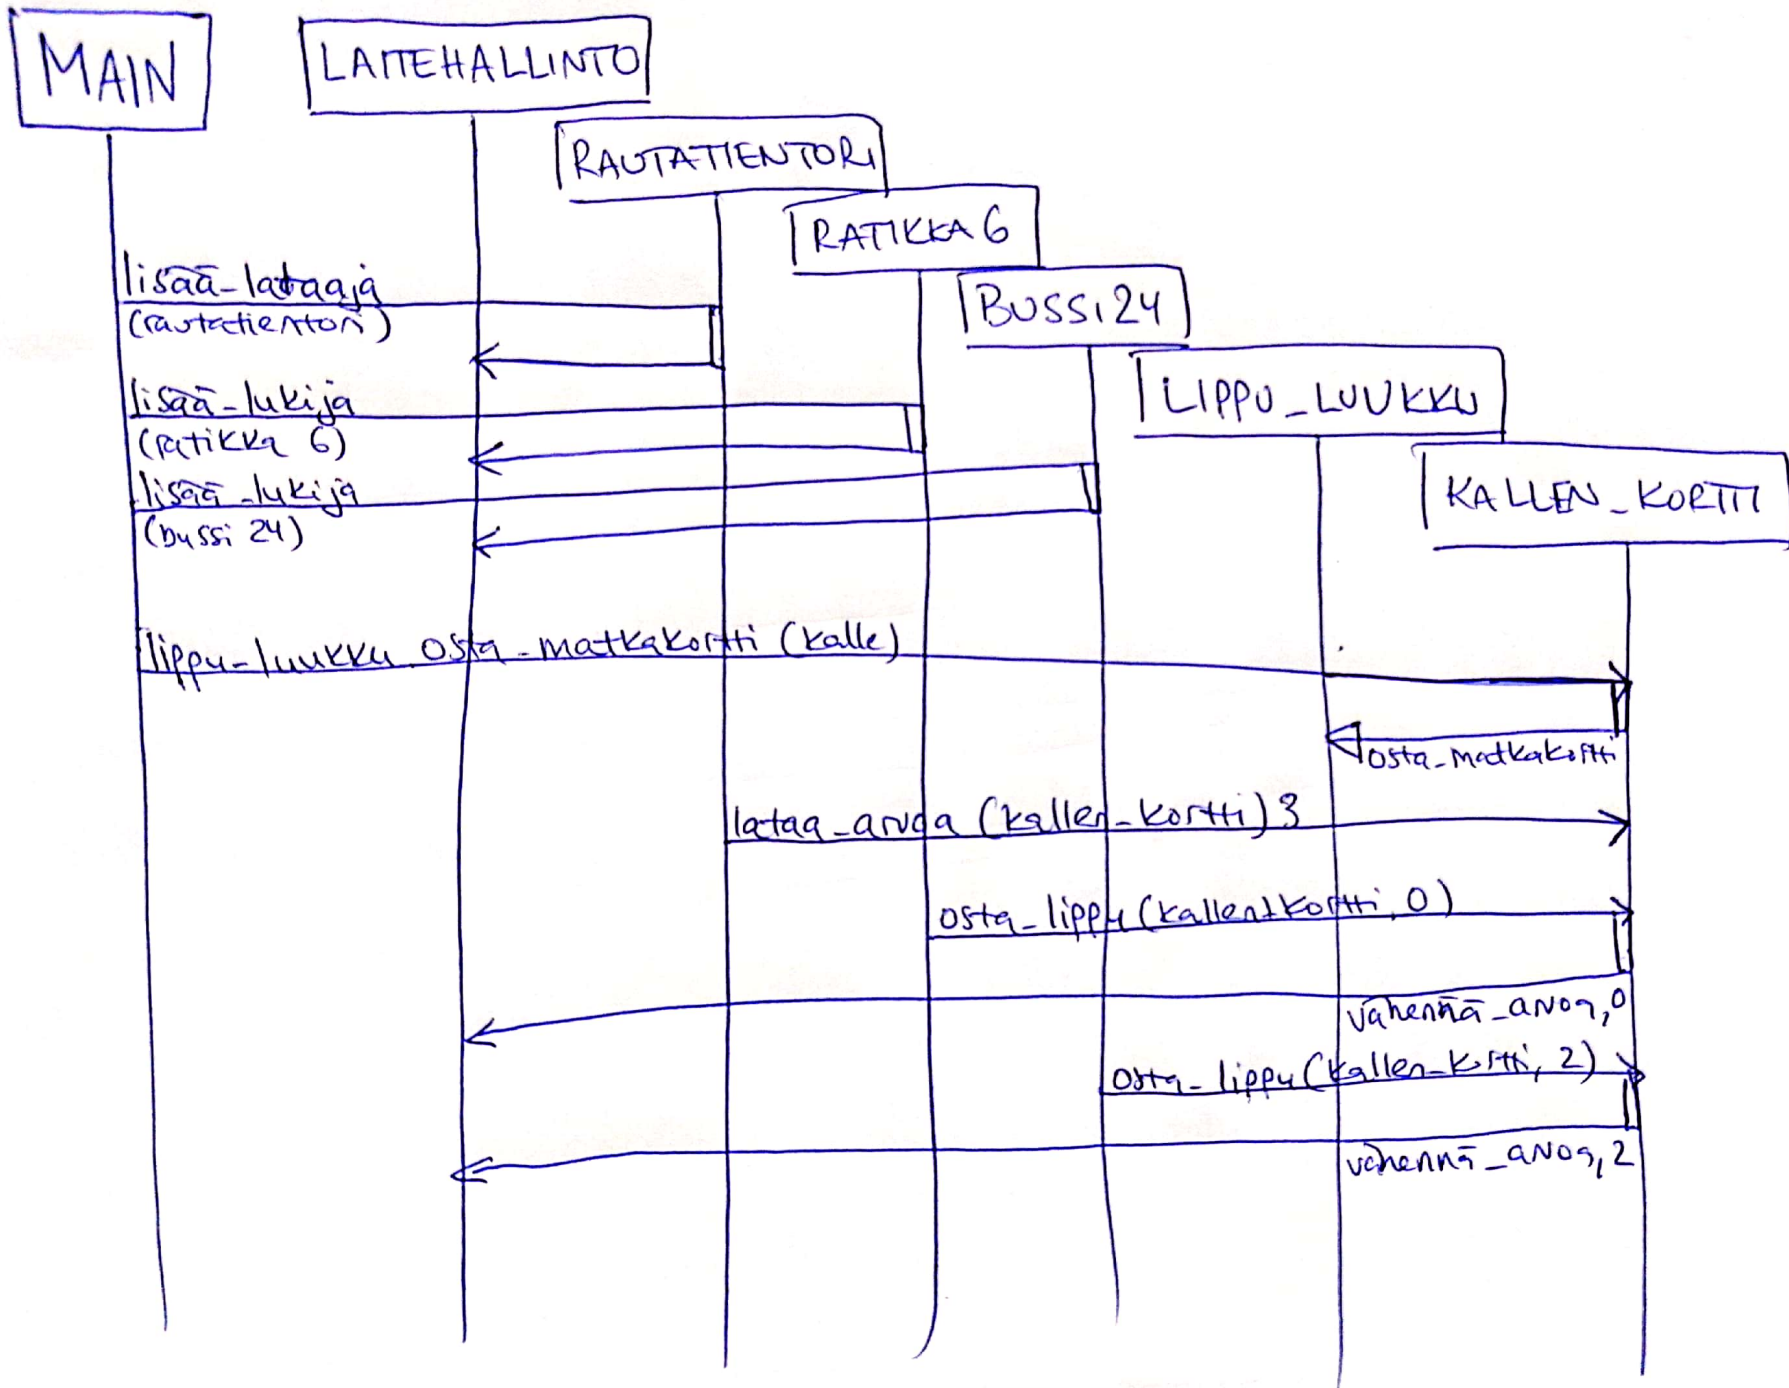 MAIN
LAITEHALLINTO
RAUTATIENTORI
RATIKKA 6
BUSSI 24
LIPPU_LUUKKU
KALLEN_KORTTI
lisää_lataaja
(rautatientori)
lisää_lukija
(ratikka 6)
lisää_lukija
(bussi 24)
lippu_luukku.osta_matkakortti (kalle)
osta_matkakortti
lataa_arvoa (kallen_kortti) 3
osta_lippu (kallen_kortti, 0)
vähennä_arvoa, 0
osta_lippu (kallen_kortti, 2)
vähennä_arvoa, 2